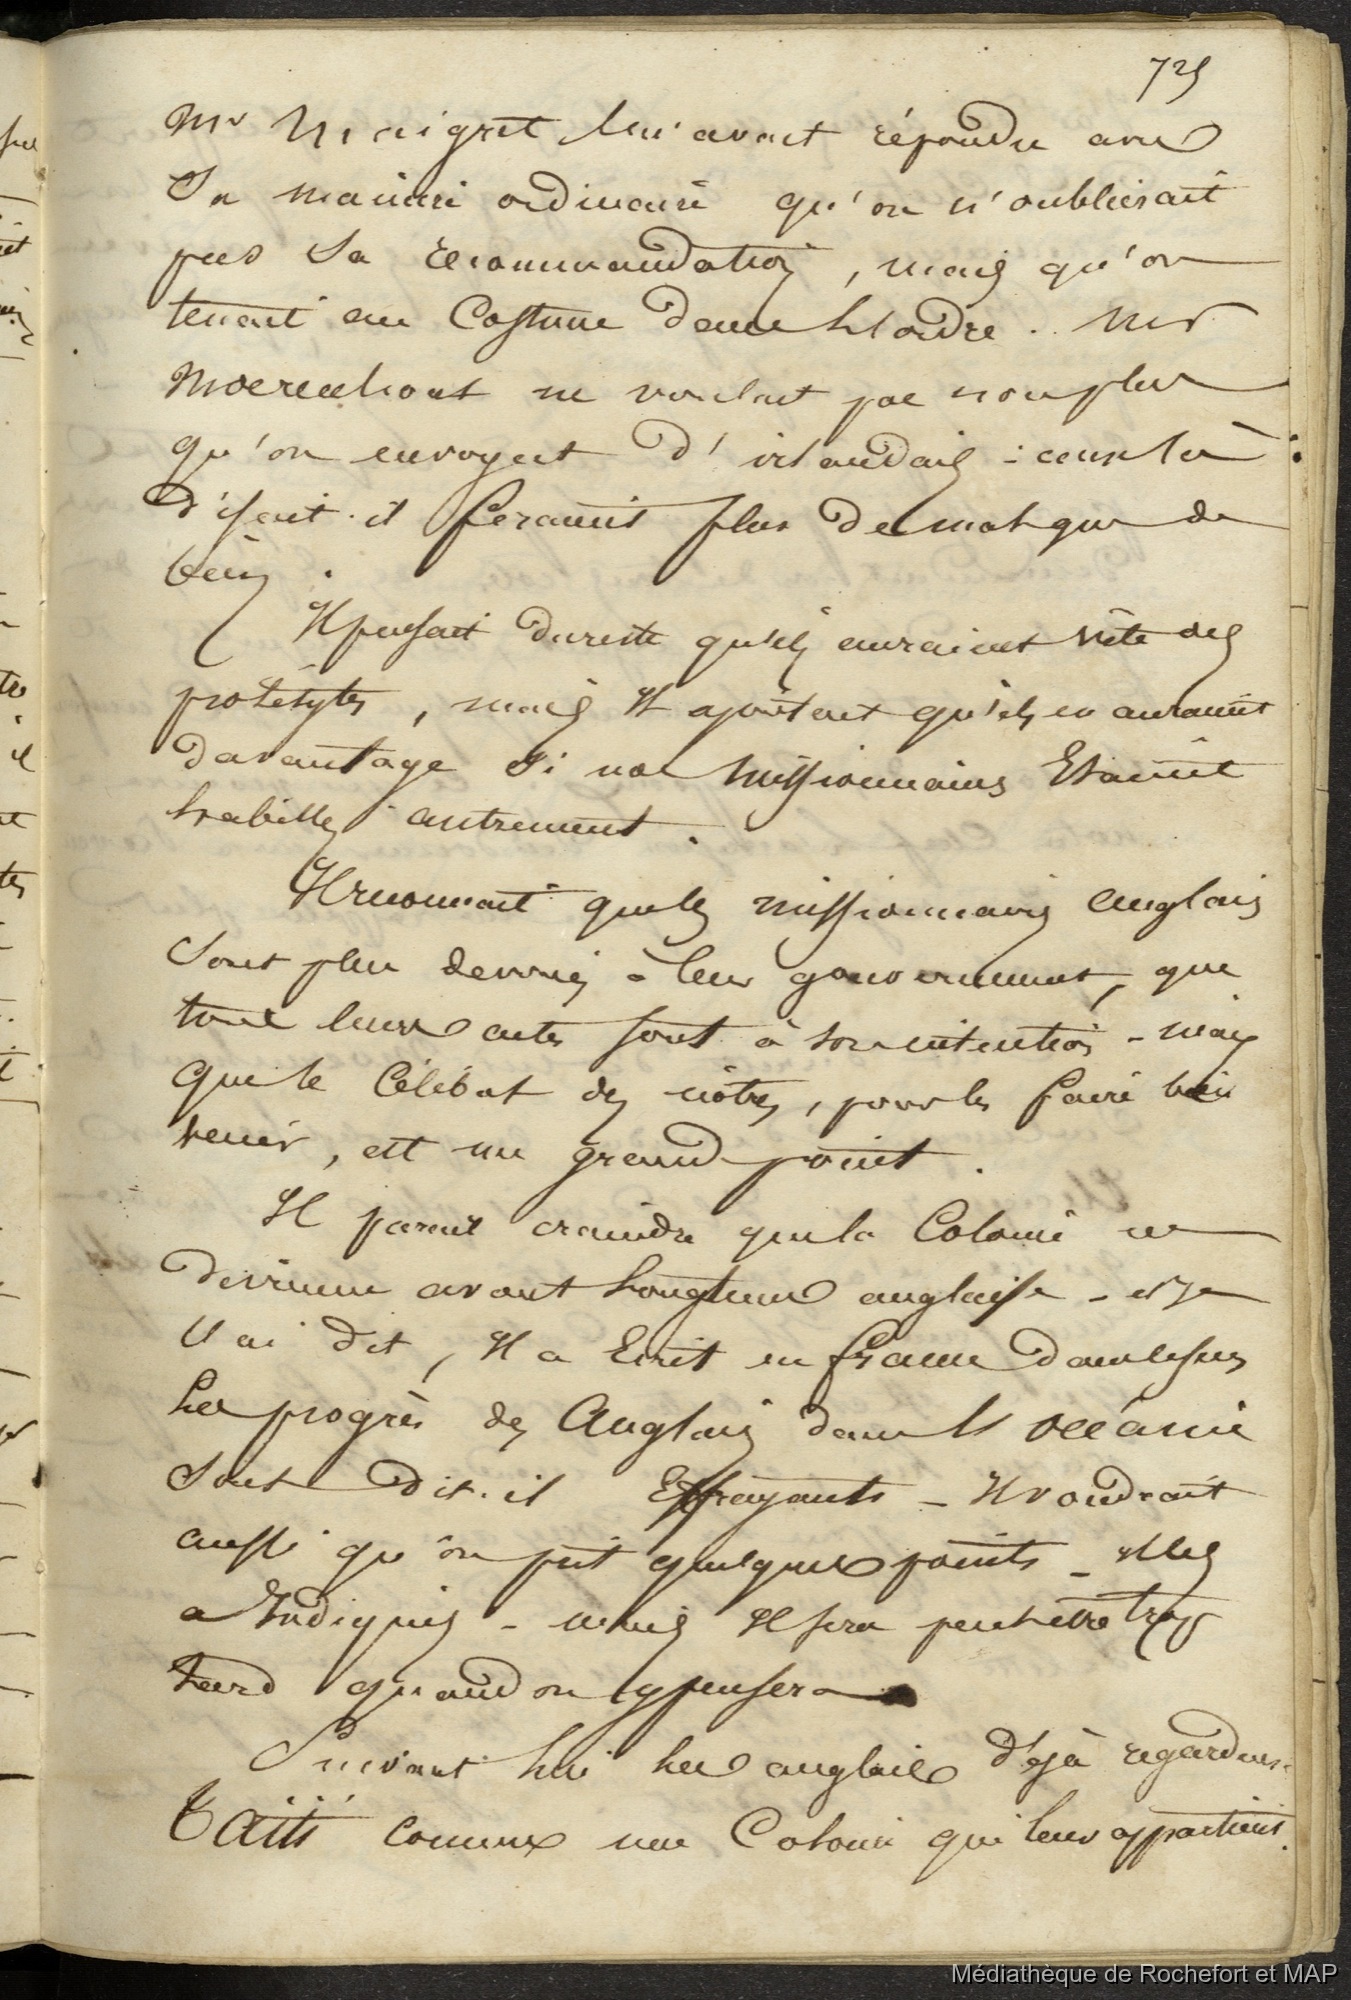 725
Mr Maigret lui avait répondu avec
sa manière ordinaire qu'on n'oublierait
pas sa recommandation, mais qu'on
tenait au costume dans l'ordre. Mr
Moerenhout ne voulait pas non plus
qu'on envoyat d'irlandais : ceux là
disait-il feraient plus de mal que de
bien.
Il pensait du reste qu'ils auraient vite des
prosélytes, mais il ajoutait qu'ils en auraient
davantage si nos missionnaires Etaient
habillés autrement.
Il reconnait que les missionnaires anglais
sont plus dévoués à leur gouvernement, que
tous leurs actes sont à son intention - mais
que le célibat des nôtres, pour les faire bien
venir, est un grand point.
Il parait craindre que la Colonie ne
devienne avant longtems anglaise - et je
l'ai dit, Il a Ecrit en france dans le sens
Les progrès des Anglais dans l'océanie
sont dit-il Effrayants - Il voudrait
aussi qu'on prit quelques points - Il les
a Indiqués - mais Il sera peut être trop
tard quand on y pensera
Suivant lui les anglais déjà regardent
Taïti comme une Colonie qui leur appartient.
Médiathèque de Rochefort et MAP